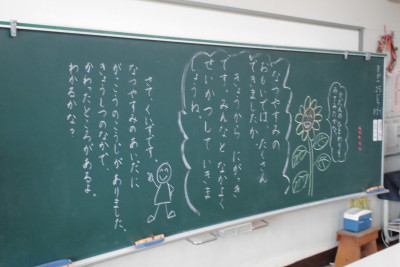 なつやすみの
おもいでは、たくさん
できましたか。
きょうから にがっき
です。みんなと なかよく
せいかつして いきま
しょうね。
さて、くいずです。
なつやすみのあいだに
がっこうのこうじが ありました。
きょうしつのなかで、
かわったところがあるよ。
わかるかな?